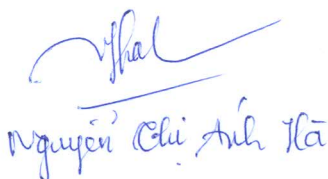 Nguyễn Chị Ánh Hà